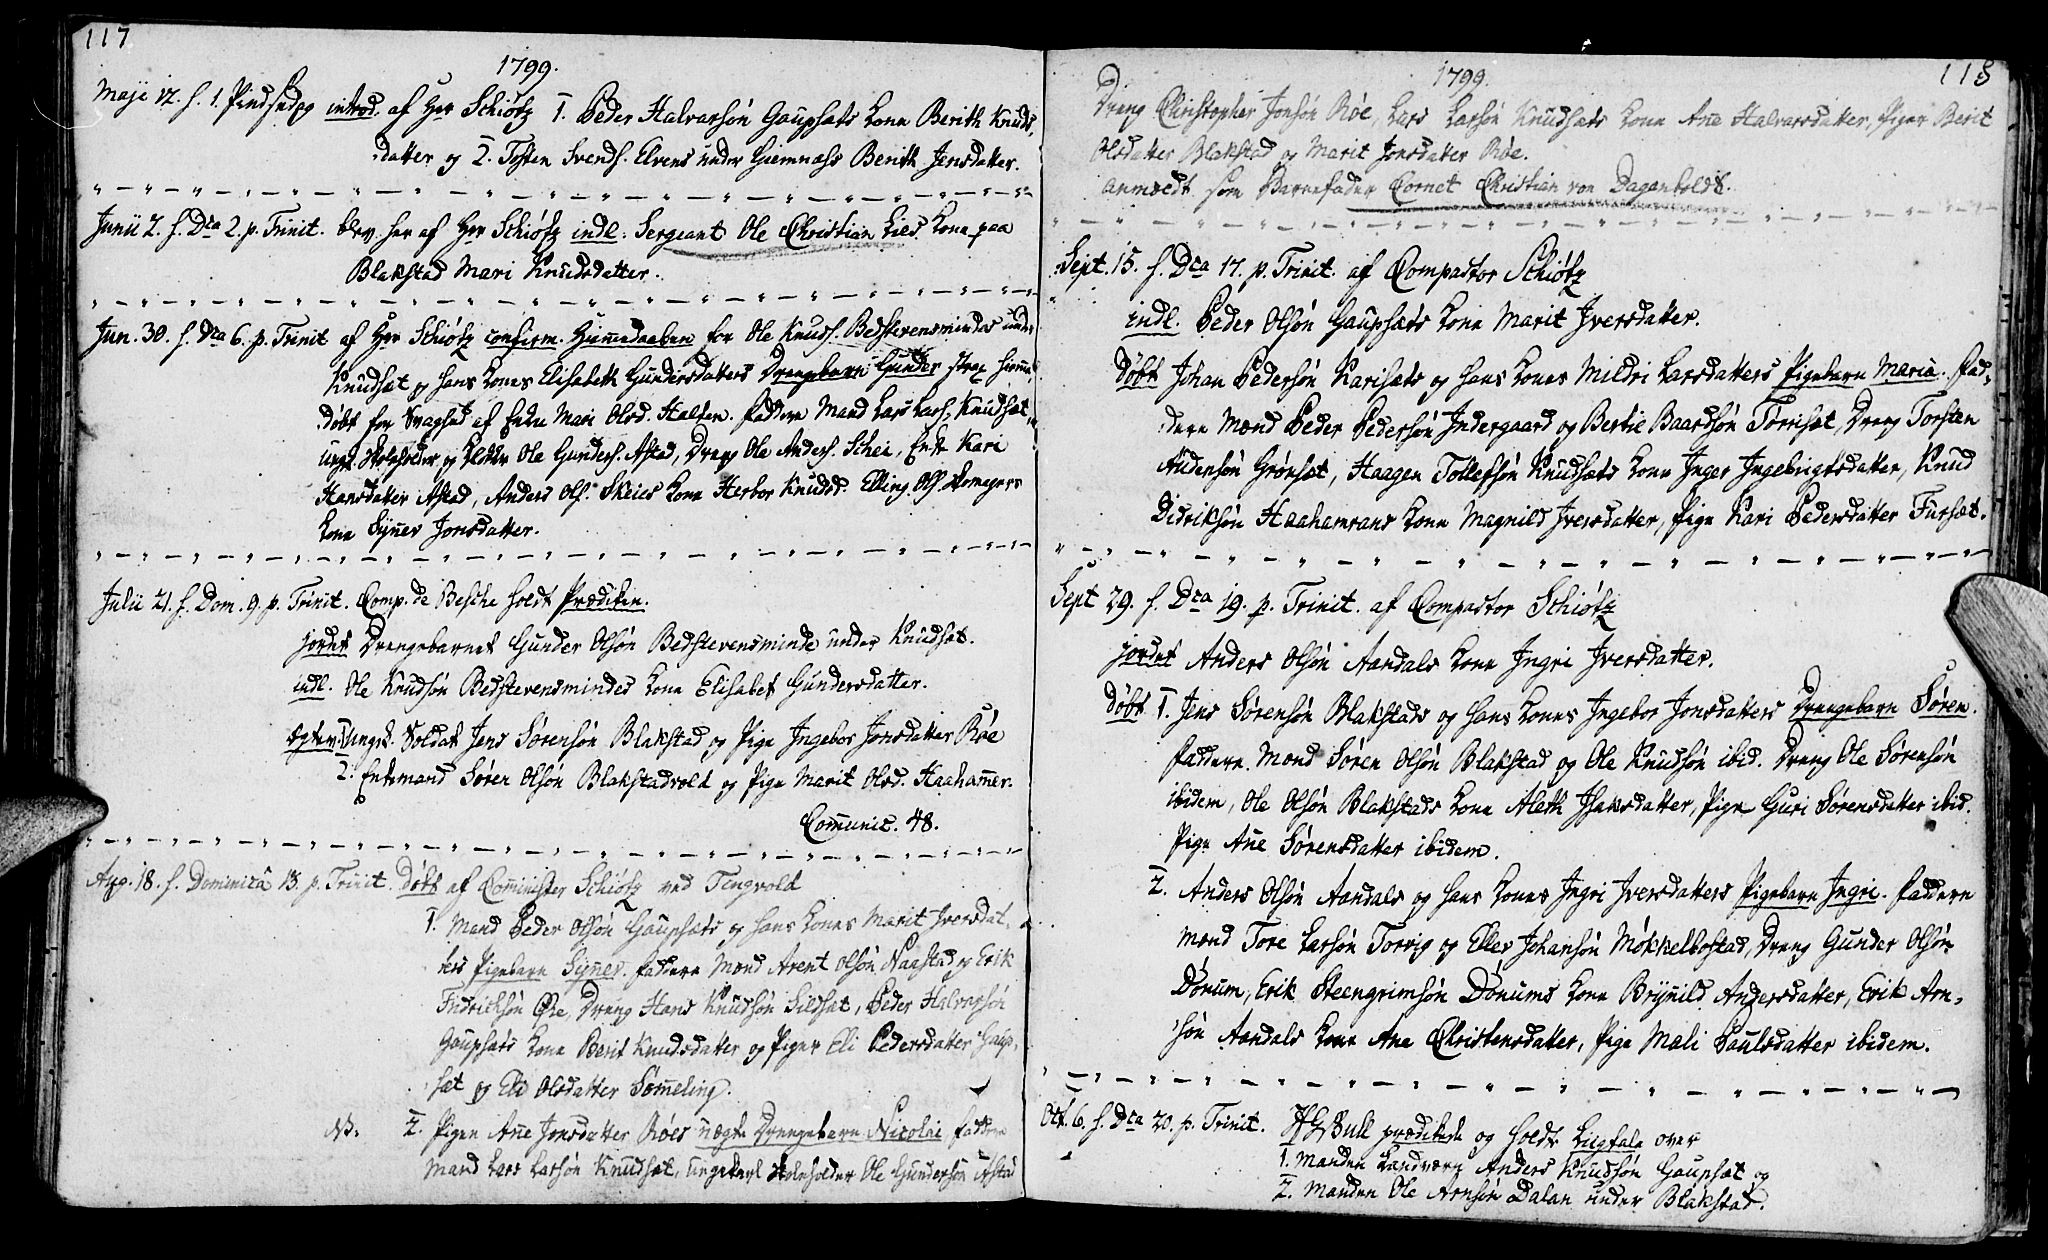 117
1799.
Maji 12. f. 1. Pindsedag introd. af Hr Schiötz 1. Peder Halvarsön Gaupsæts Kone Berith Knuds,
datter og 2. Tosten Svends. Elvens under Giemnæss Berith Jensdatter.
Junii 2. f. Dca 2. p. Trinit. blev her af Hr Schiötz indl: Sergeant Ole Christian Lies Kone paa
Blakstad Mari Knudsdatter.
Jun. 30. f. Dca 6. p. Trinit af Hr Schiötz confirm. Hiemedaaben for Ole Knuds. Bedstevensmindes under
Knudsæt og hans Kones Elisabeth Gundersdatters Drengebarn Gunder strax hiemme
döbt for Svaghed af Enken Mari Olsd. Halsen. Faddere Mand Lars Lars. Knudsæt
ungk. Skoleholder og Klokker Ole Gunders. Astad, Dreng Ole Anders. Schei, Enke Kari
Hansdatter Astad, Anders Ols. Skeies Kone Herbor Knudsd. Elling Ols.
Kone Syner Jonsdatter.
Julii 21. f. Dom. 9. p. Trinit. Comp. de Besche holdt Prædiken.
jordet Drengebarnet Gunder Olsön Bedstevensminde under Knudsæt.
indl. Ole Knudsön Bedstevensmindes Kone Elisabet Gundersdatter.
Egtev. 1. ungk. Soldat Jens Sörensön Blakstad og Pige Ingebor Jonsdatter Röe
2. Enkemand Sören Olsön Blakstadvold og Pige Marit Olsd. Haahamer.
Comunic. 48.
Aug. 18. f. Dominica 13. p. Trinit. döbt af Cominister Schiötz ved Tingvold
1. Mand Peder Olsön Gaupsæts og hans Kones Marit Iversdat,
ters Pigebarn Syner. Faddere Mænd Arent Olsön Naastad og Erik
Fridrichsön Öre, Dreng Hans Knudsön Sildsæt, Peder Halvorsön
Gaupsæts Kone Berit Knudsdatter og Piger Eli Pedersdatter Gaup,
sæt og Eli Olsdatter Sömeling.
NB. 2. Pigen Ane Jonsdatter Röes uægte Drengebarn Nicolai Faddere
Mand Lars Larsön Knudsæt, ungekarl Skoleholder Ole Gundersön Astad
118
1799.
Dreng Christopher Jonsön Röe, Lars Larsön Knudsæts Kone Ane Halvarsdatter, Piger Berit
Olsdatter Blakstad og Marit Jonsdatter Röe.
anmeldt som Barnefader Cornet Christian von Daganboldt.
Sept. 15. f. Dca 17. p. Trinit. af Compastor Schiötz
indl. Peder Olsön Gaupsæts Kone Marit Iversdatter.
Döbt Johan Pedersön Karisæts og hans Kones Mildri Larsdatters Pigebarn Maria. Fad,
dere Mænd Peder Pedersön Indergaard og Bertil Baardsön Torrisæt, Dreng Torsten
Andersön Grönset, Haagen Tollefsön Knudsæts Kone Inger Ingebrigtsdatter, Knud
Didriksön Haahamrans Kone Magnild Iversdatter, Pige Kari Pedersdatter Fursæt.
Sept 29. f. Dca 19. p. Trinit. af Compastor Schiötz
jordet Anders Olsön Aandals Kone Ingri Iversdatter.
Döbt 1. Jens Sörensön Blakstads og hans Kones Ingebor Jonsdatters Drengebarn Sören.
Faddere Mænd Sören Olsön Blakstad og Ole Knudsön ibid. Dreng Ole Sörensön
ibidem, Ole Olsön Blakstads Kone Aleth Isaksdatter, Pige Guri Sörensdatter ibid.
Pige Ane Sörensdatter ibidem.
2. Anders Olsön Aandals og hans Kones Ingri Iversdatters Pigebarn Ingri. Faddere
Mænd Tore Larsön Torvig og Eller Johansön Mökkelbostad, Dreng Gunder Olsön
Dönum, Erik Steengrimsön Dönums Kone Brynild Andersdatter, Erik Arn,
sön Aandals Kone Ane Christensdatter, Pige Mali Paulsdatter ibidem.
Oct. 6. f. Dca 20. p. Trinit. HGBull prædikede og holdt Liigtale over
1. Manden Landværn Anders Knudsön Gaupsæt og
2. Manden Ole Arnsön Dalan under Blakstad.